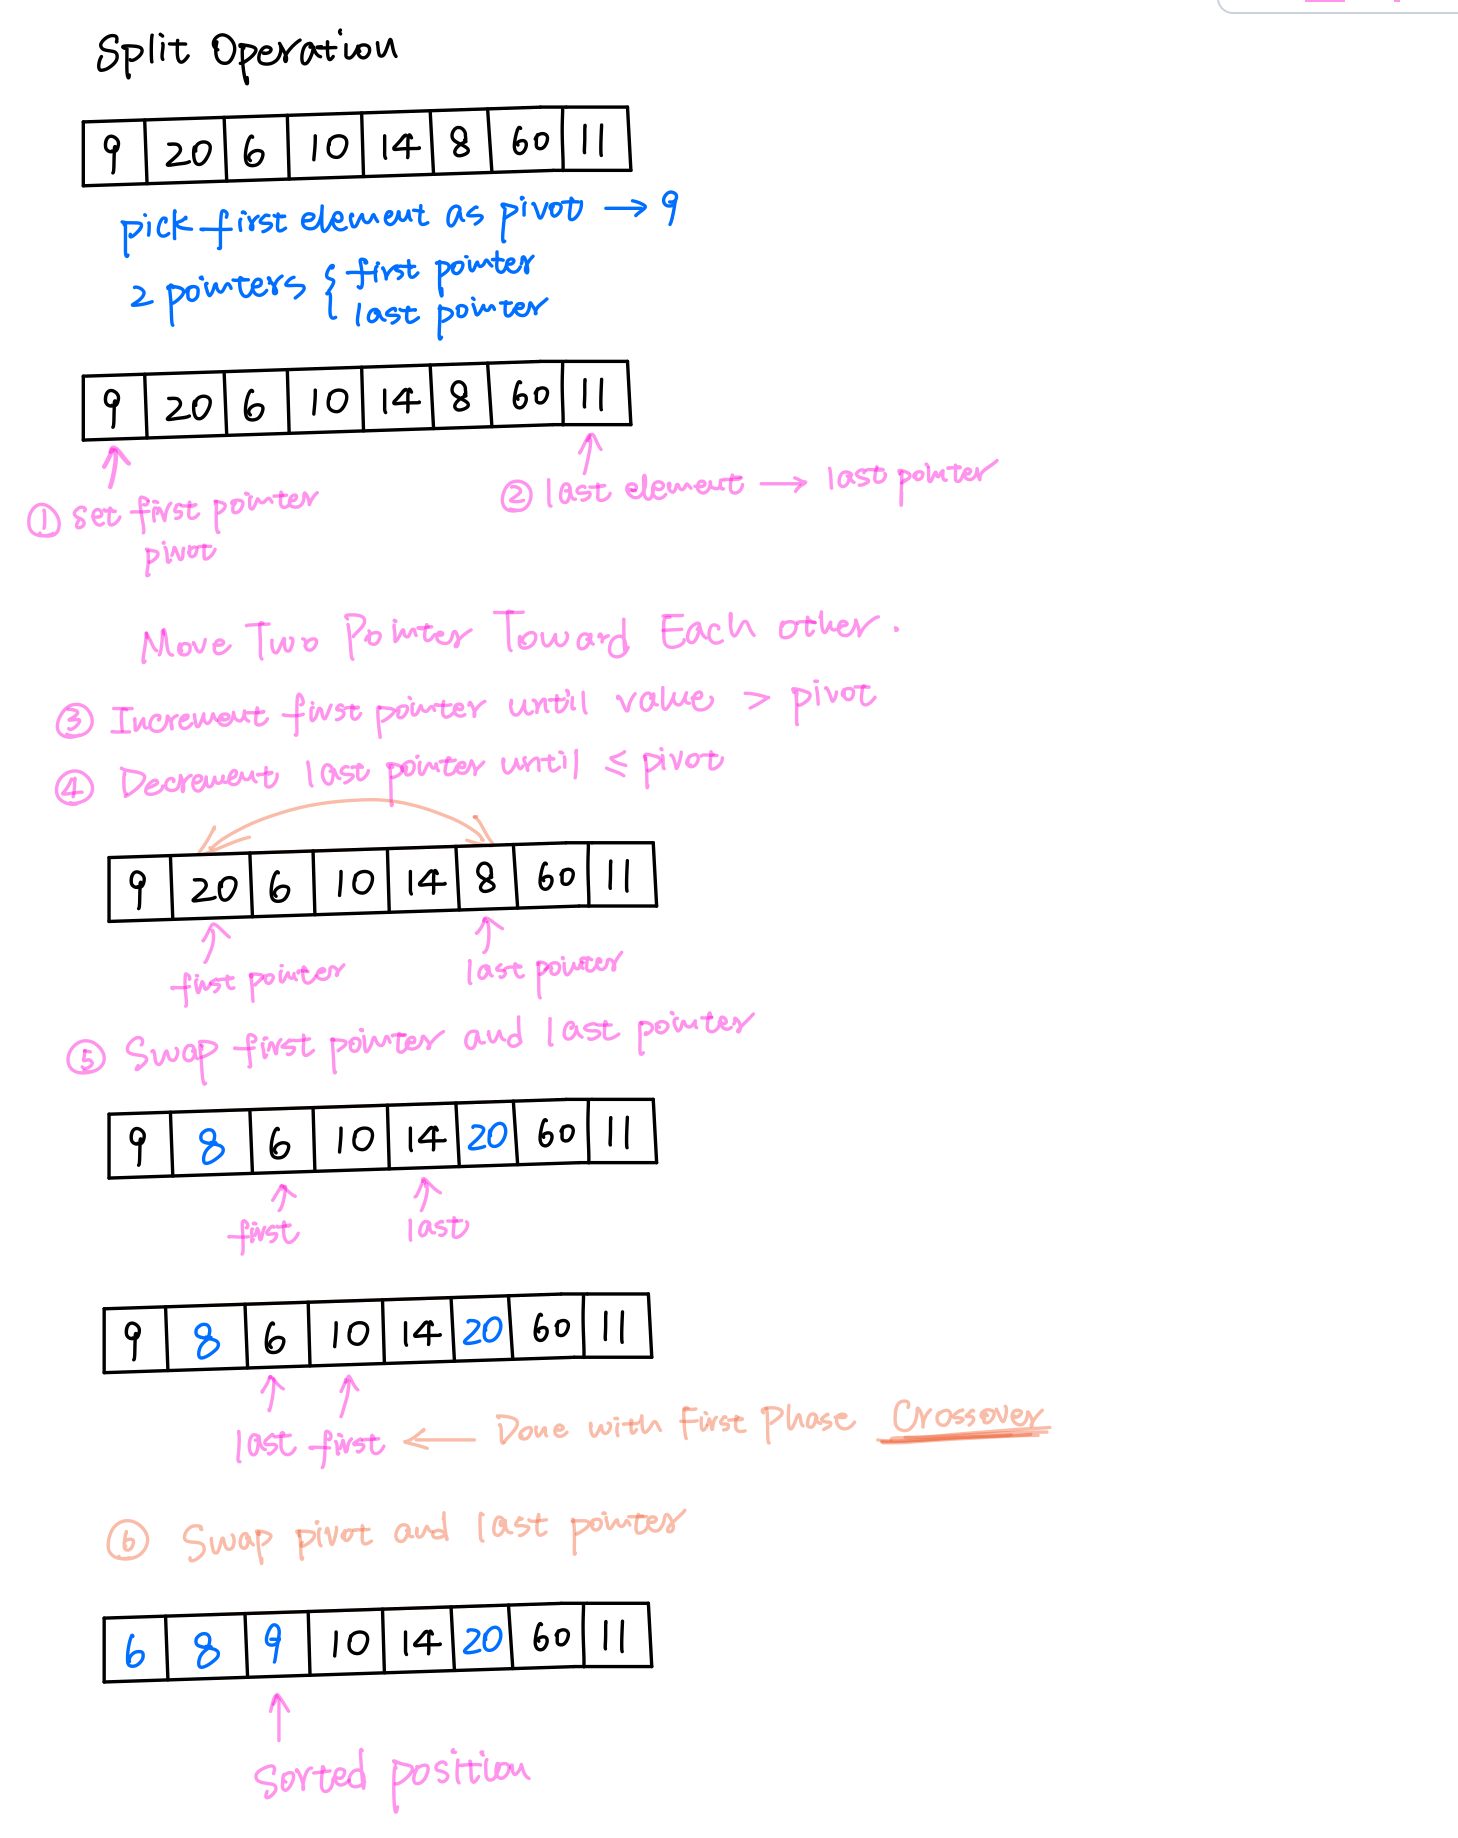 Split Operation
9 20 6 10 14 8 60 11
pick first element as pivot → 9
2 pointers { first pointer
last pointer
9 20 6 10 14 8 60 11
① Set first pointer
pivot
② last element → last pointer
Move Two Pointer Toward Each other.
③ Increment first pointer until value > pivot
④ Decrement last pointer until ≤ pivot
9 20 6 10 14 8 60 11
first pointer last pointer
⑤ Swap first pointer and last pointer
9 8 6 10 14 20 60 11
first last
9 8 6 10 14 20 60 11
last first ← Done with First Phase Crossover
⑥ Swap pivot and last pointer
6 8 9 10 14 20 60 11
Sorted position